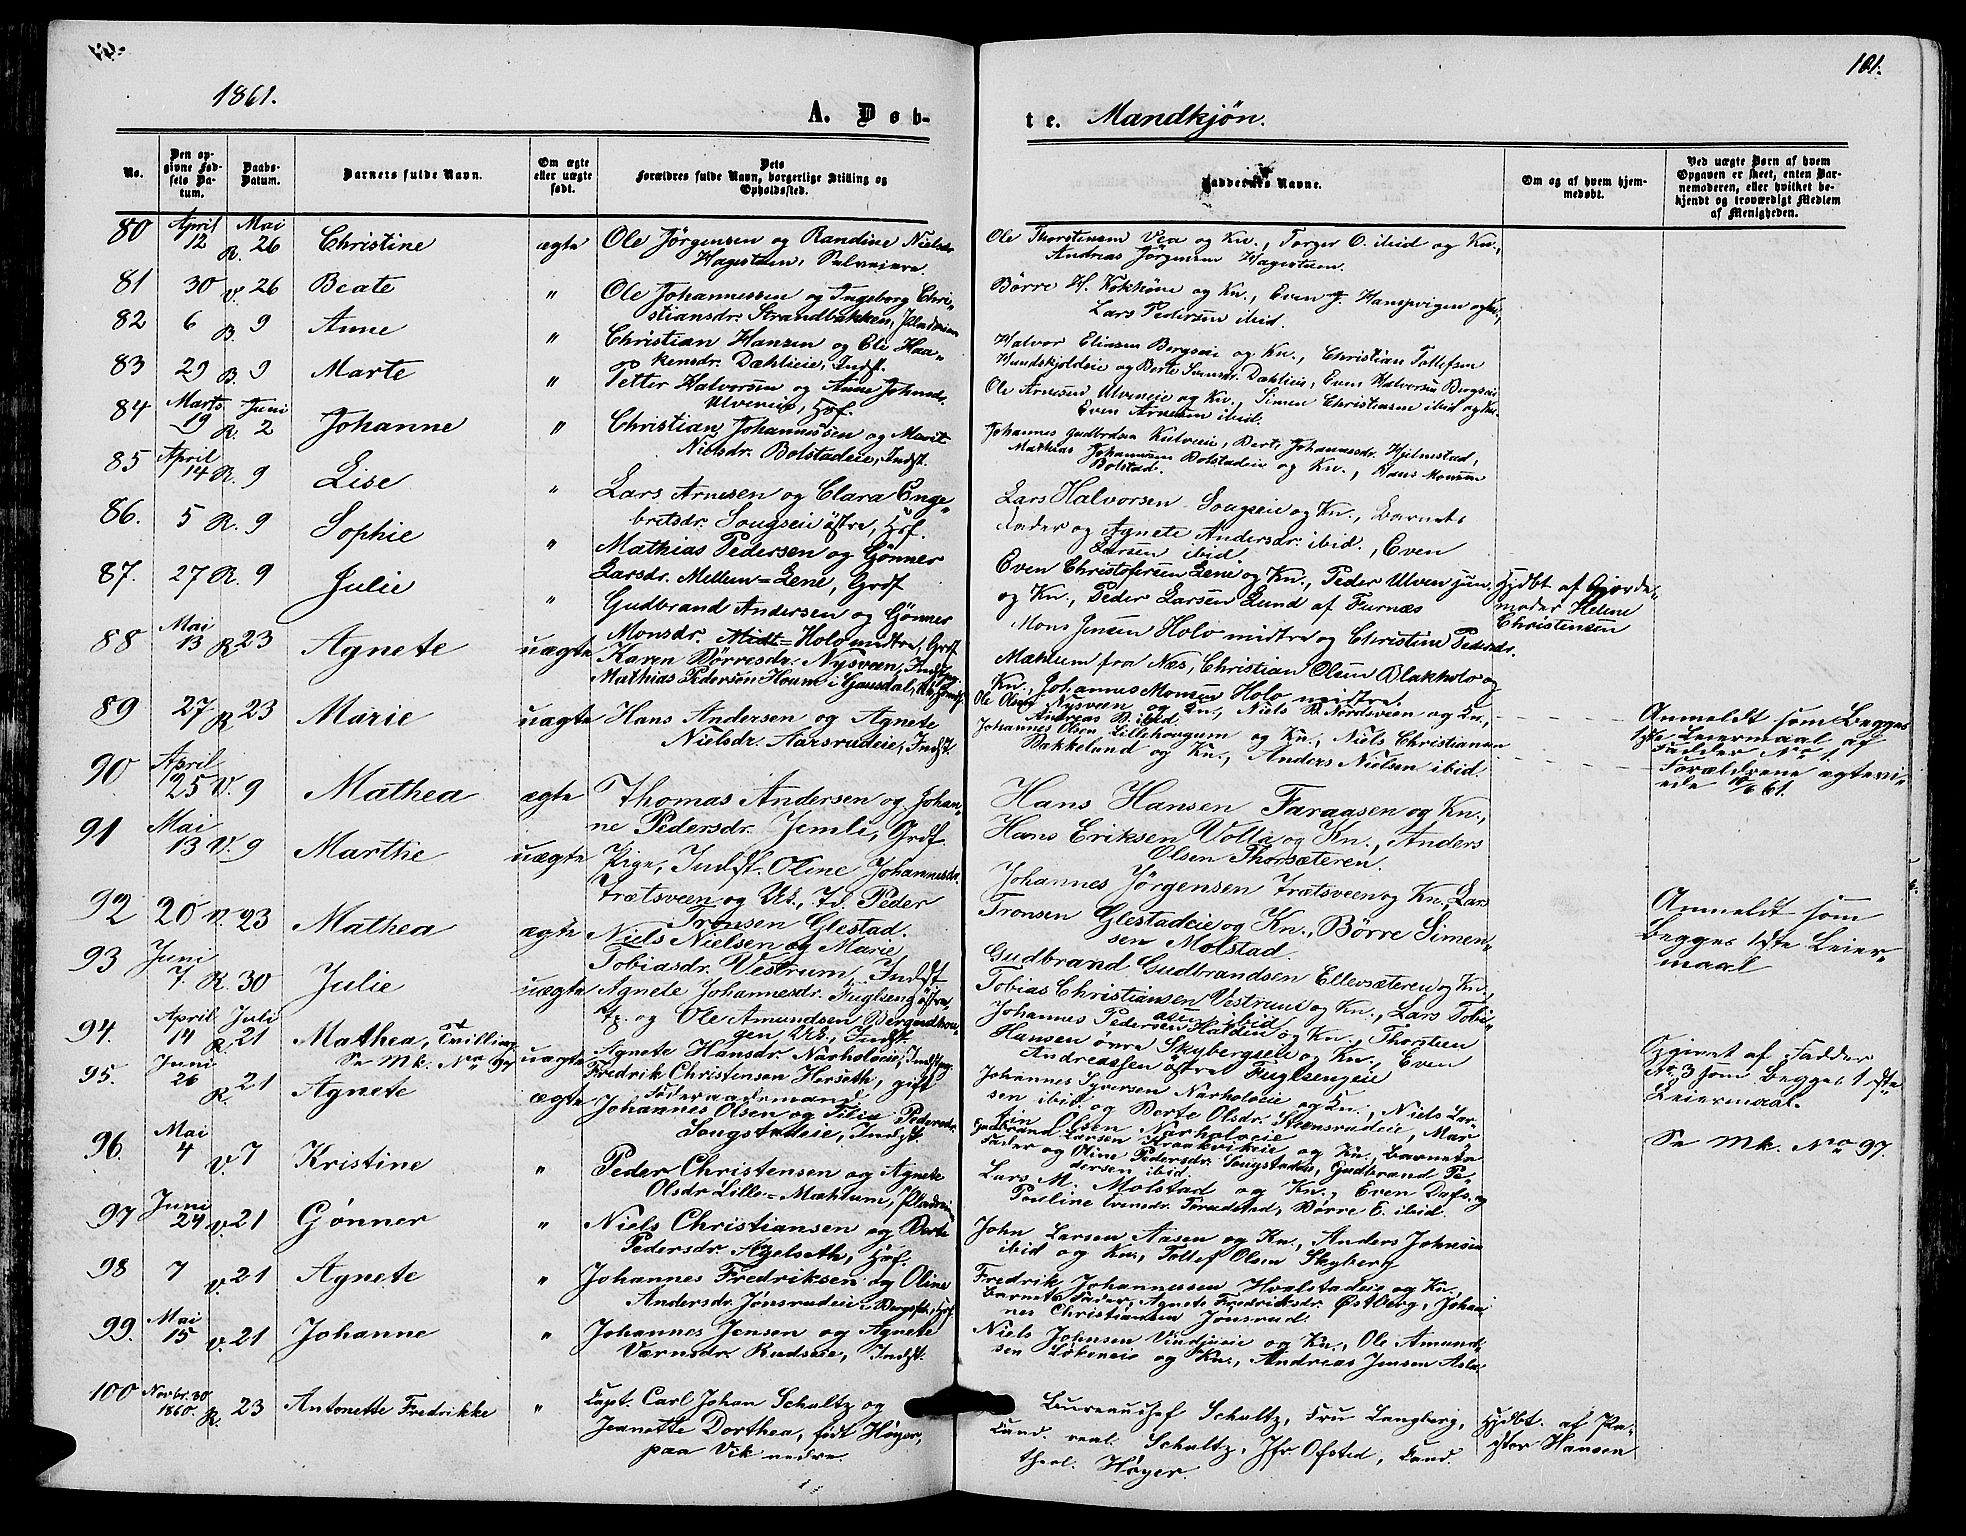 1861.
A. Døb-
No.
Den op-
givne Fød-
sels Da-
tum.
Daabs-
Datum.
Barnets fulde Navn.
Om ægte
eller uægte
født.
Dets
Forældres fulde Navn, borgerlige Stilling og
Opholdssted.
80 April 12 Mai R. 26 Christine ægte Ole Jörgensen og Randine Nielsdr.
Hagestuen, Selveiere.
81 30 V. 26 Beate " Ole Johannessen og Ingeborg Chri-
stiansdr. Strandbakken,
82 6 B. 9 Anne " Christian Hansen og Eli Haa-
kensdr. Dahlieie, Indst.
83 29 B. 9 Marte " Petter Halvorsen og Anne Johnsdr.
Ulveneie, Hsf.
84 Marts 19 Juni R. 2 Johanne " Christian Johannessen og Marit
Nielsdr. Bolstadeie, Indst.
85 April 14 R. 9 Lise " Lars Arnesen og Clara Enge-
bretsdr. Sougseie östre, Hsf.
86. 5 R. 9 Sophie " Mathias Pedersen og Gönner
Larsdr. Mellum=Lene, Grdf
87. 27 R. 9 Julie " Gudbrand Andersen og Gönner
Monsdr. Holo midtre, Grdf
88 Mai 13 R. 23 Agnete uægte Karen Börresdr. Nysveen, Indstpg.
Mathias Pedersen Houm i Gausdal,
89 27 R. 23 Marie uægte Hans Andersen og Agnete
Nielsdr. Aarsrudeie, Indst.
90 April 25 V. 9 Mathea ægte Thomas Andersen og Johan-
ne Pedersdr. Jemli, Grdf.
91 Mai 13 V. 9 Marthe uægte Pige, Indst. Oline Johannesdr.
Trætsveen og Peder
Tronsen Glestad.
92 20 V. 23 Mathea ægte Niels Nielsen og Marie
Tobiasdr. Vestrum, Indst
93 Juni 7. R. 30 Julie uægte Agnete Johannesdr. Fuglseng östre
og Ole Amundsen Bergundhou-
gen, Indst.
94. April 14 Juli R. 21 Mathea, Tvilling
Se Mk. No 97 uægte Agnete Hansdr. Narholoeie, Indstpg.
Fredrik Christensen Herseth, gift
Föderaadsmand
95. Juni 26 R. 21 Agnete ægte Johannes Olsen og Pedersdr.
Sougstadeie, Indst.
96. Mai 4 V. 7 Kristine " Peder Christensen og Agnete
Olsdr Lille=Mæhlum,
97 Juni 24 V. 21 Gönner " Niels Christiansen og Berte
Pedersdr Axelseth, Hsf.
98 7 V. 21 Agnete " Johannes Fredriksen og Oline
Andersdr. Jönsrudeie i Hsf.
99. Mai 15 V. 21 Johanne " Johannes Jensen og Agnete
Værnsdr. Rudseie, Indst.
100 Novbr. 30 1860. R. 23 Antonette Fredrikke " Capt. Carl Johan Schultz og
Jeanette Dorthea, födt Höyer,
paa Vik nedre.
101.
te. Mandkjön.
Faddernes Navne.
Om og af hvem hjem-
medøbt.
Ved uægte Børn af hvem
Opgaven er skeet, enten Bar-
nemoderen, eller hvilket be-
kjendt og troværdigt Medlem
af Menigheden.
Ole Thorstensen Vea og Kn., Torger O. ibid og Kn.,
Andreas Jörgensen Hagestuen.
Börre H. Kokhöne og Kn., Even
Lars Pedersen ibid.
Halvor Eliasen Bergseie og Kn., Christian Tollefsen
Hundskjoldeie og Berte Dahlieie, Even Halvorsen Bergseie
Ole Arnesen Ulveneie og Kn., Simen Christensen ibid og Kn.
Even Arnesen ibid.
Johannes Gudbrdsen Berte Johannesdr. Hjelmstad,
Mathias Johannesen Bolstadeie og Kn., Hans Monsen
Bolstad.
Lars Halvorsen Sougseie og Kn., Barnets
Fader og Agnete Andersdr. ibid., Even
Larsen ibid
Even Christofersen Lene og Kn., Peder Ulven jun.
og Kn., Peder Larsen Lund af Furnæs
Hjdbt af Gjorde-
moder Helene
Christensen
Mons Jensen Holo midtre og Christine Pedersdr.
Mæhlum fra Næs, Christian Olsen Blakholo og
Kn., Johannes Monsen Holo midtre.
Ole Olsen Nysveen og Kn., Niels B. Nordsveen og Kn.,
Andreas B. ibid.
Johannes Olsen Lillehougum og Kn., Niels Christiansen
Bakkelund og Kn., Anders Nielsen ibid.
Anmeldt som Begges
1ste Leiermaal af
Fadder No 1
Forældrene ægtevi-
ede 61.
Hans Hansen Faraasen og Kn.,
Hans Eriksen Volla og Kn., Anders
Olsen Thorsæteren.
Johannes Jörgensen Trætsveen og Kn., Lars
Tronsen Glestadeie og Kn., Börre Simen-
sen Molstad.
Anmeldt som
Begges 1ste Leier-
maal
Gudbrand Gudbrandsen Ellevsæteren og Kn.,
Tobias Christiansen Vestrum og Kn., Lars Tobi-
asen ibid
Johannes Pedersen Halden og Kn., Thorsten
Hansen övre Skybergseie og Kn., Even
Andreassen östre Fuglsengeie
Opgivet af Fadder
No 3 som Begges 1ste
Leiermaal.
Johannes Syversen Narholoeie og Kn., Niels Lar-
sen ibid og Berte Olsdr. Steensrudeie, Mar-
tin Olsen Narholoeie
Se Mk. No 97
Gudbrand Larsen Kraakvikeie og Kn., Barnets
Fader og Oline Pedersdr. Sougstadeie, Gudbrand Pe-
dersen ibid.
Lars M. Molstad og Kn., Even Dafs. og
Pouline Evensdr. Börre E. ibid.
John Larsen Aasen og Kn., Anders Johnsen
ibid og Kn., Tollef Olsen Skyberg
Fredrik Johannessen Hvalstadeie og Kn.
Barnets Fader, Agnete Fredriksdr. Östberg, Johan-
nes Christiansen Jönsrud.
Niels Johnsen og Kn., Ole Amund-
sen Lökeneie og Kn., Andreas Jensen
Bureauchef Schultz, Fru Langberg,
Cand. real. Schultz, Jfr. Ofsted, Cand.
theol. Höyer.
Hjdbt. af Pa-
stor Hansen